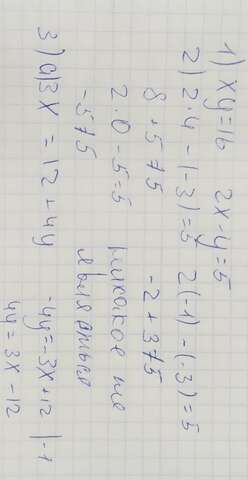 1) xy=16 2x-y=5
2) 2·4-(-3)=5 2(-1)-(-3)=5
8+5≠5 -2+3≠5
2·0-5=5 никакое не
-5≠5 является
3) а) 3x=12+4y -4y=-3x+12 |-1
4y=3x-12